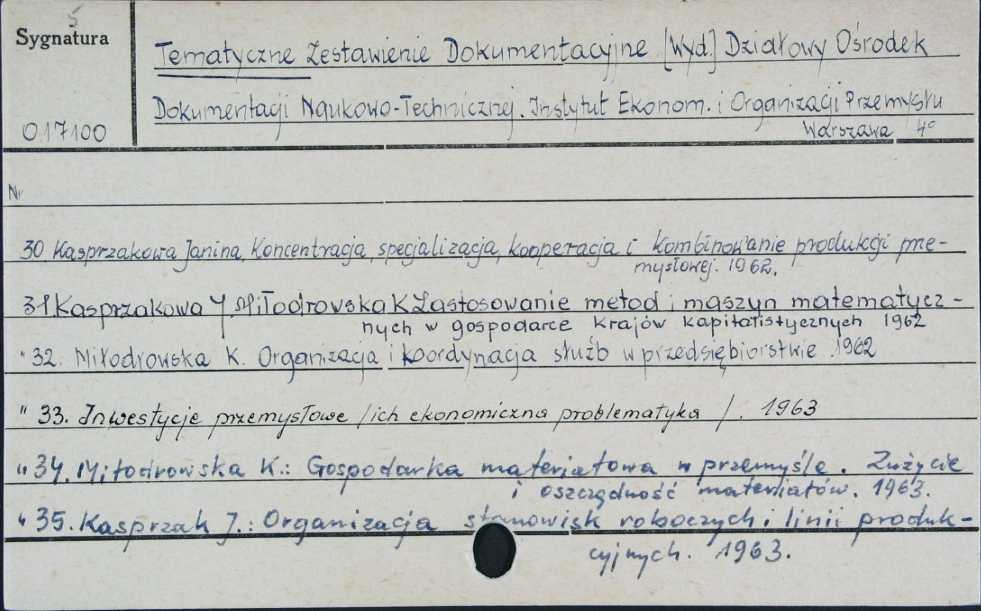 5
Sygnatura
Tematyczne Zestawienie Dokumentacyjne [Wyd.] Działowy Ośrodek
Dokumentacji Naukowo-Technicznej. Instytut Ekonom. i Organizacji Przemysłu
017100
Warszawa 4°
Nr
30 Kasprzakowa Janina, Koncentracja, specjalizacja, kooperacja i kombinowanie produkcji prze-
mysłowej. 1962.
31 Kasprzakowa J Miłodrovska K Zastosowanie metod i maszyn matematycz-
nych w gospodarce krajów kapitalistycznych 1962
" 32. Miłodrowska K. Organizacja i koordynacja służb w przedsiębiorstwie. 1962
" 33. Inwestycje przemysłowe /ich ekonomiczna problematyka /. 1963
" 34. Miłodrowska K.: Gospodarka materiałowa w przemyśle. Zużycie
i oszczędność materiałów. 1963.
" 35. Kasprzak J.: Organizacja stanowisk roboczych i linii produk-
cyjnych. 1963.